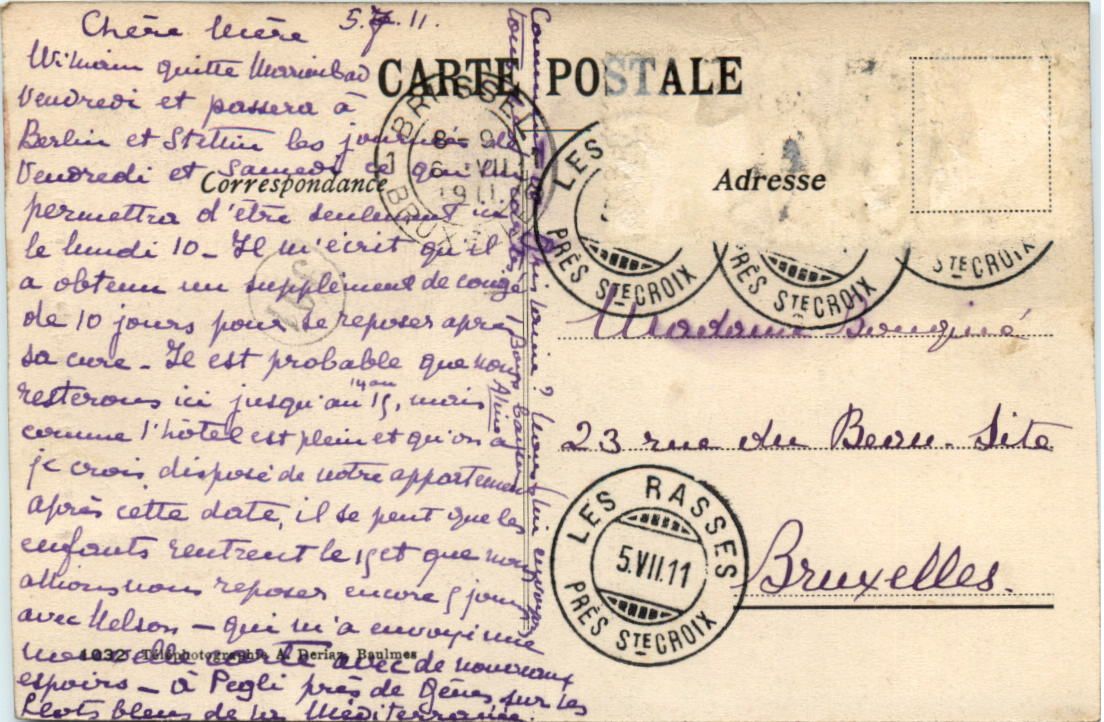 Chère Mère 5.7.11.
William quitte Marienbad
Vendredi et passera à
Berlin et Stettin les journées de
Vendredi et Samedi ce qui lui
permettra d'être seulement ici
le lundi 10 - Il m'écrit qu'il
a obtenu un supplément de congé
de 10 jours pour se reposer après
sa cure - Il est probable que nous
resterons ici jusqu'au 14 ou 15, mais
comme l'hôtel est plein et qu'on a
je crois, disposé de notre appartement
après cette date, il se peut que les
enfants rentrent le 15 et que nous
allions nous reposer encore 5 jours
avec Nelson - qui m'a envoyé une
nouvelle carte avec de nouveaux
espoirs - à Pegli près de Gênes sur les
flots bleus de la Méditerranée.
Comment va ? Nous lui envoyons
tous 1 Bons baisers
Aline
CARTE POSTALE
Correspondance
Adresse
Madame Bouqué
23 rue du Beau-Site
Bruxelles.
BRUSSEL 1
8-9
6 VII
1911
BRUX
LES
PRÈS STE CROIX
PRÈS STE CROIX
STE CROIX
LES RASSES
5.VII.11
PRÈS STE CROIX
1032 Téléphotographie A. Deriaz, Baulmes